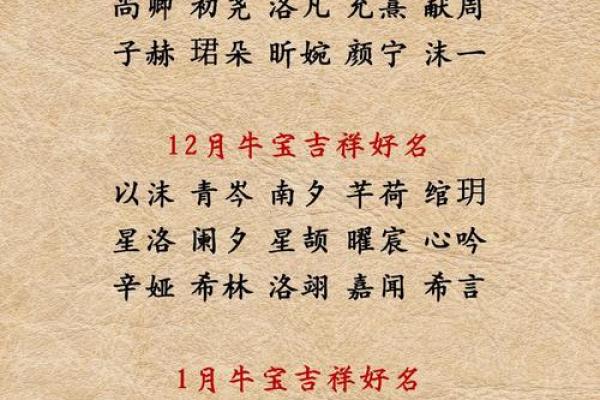 尚卿 初尧 洛凡 允熹 献周
子赫 珺朵 昕婉 颜宁 沫一
12月牛宝吉祥好名
以沫 青岑 南夕 芊荷 绾玥
星洛 阑夕 星颉 曜宸 心吟
辛娅 希林 洛翊 嘉闻 希言
1月牛宝吉祥好名